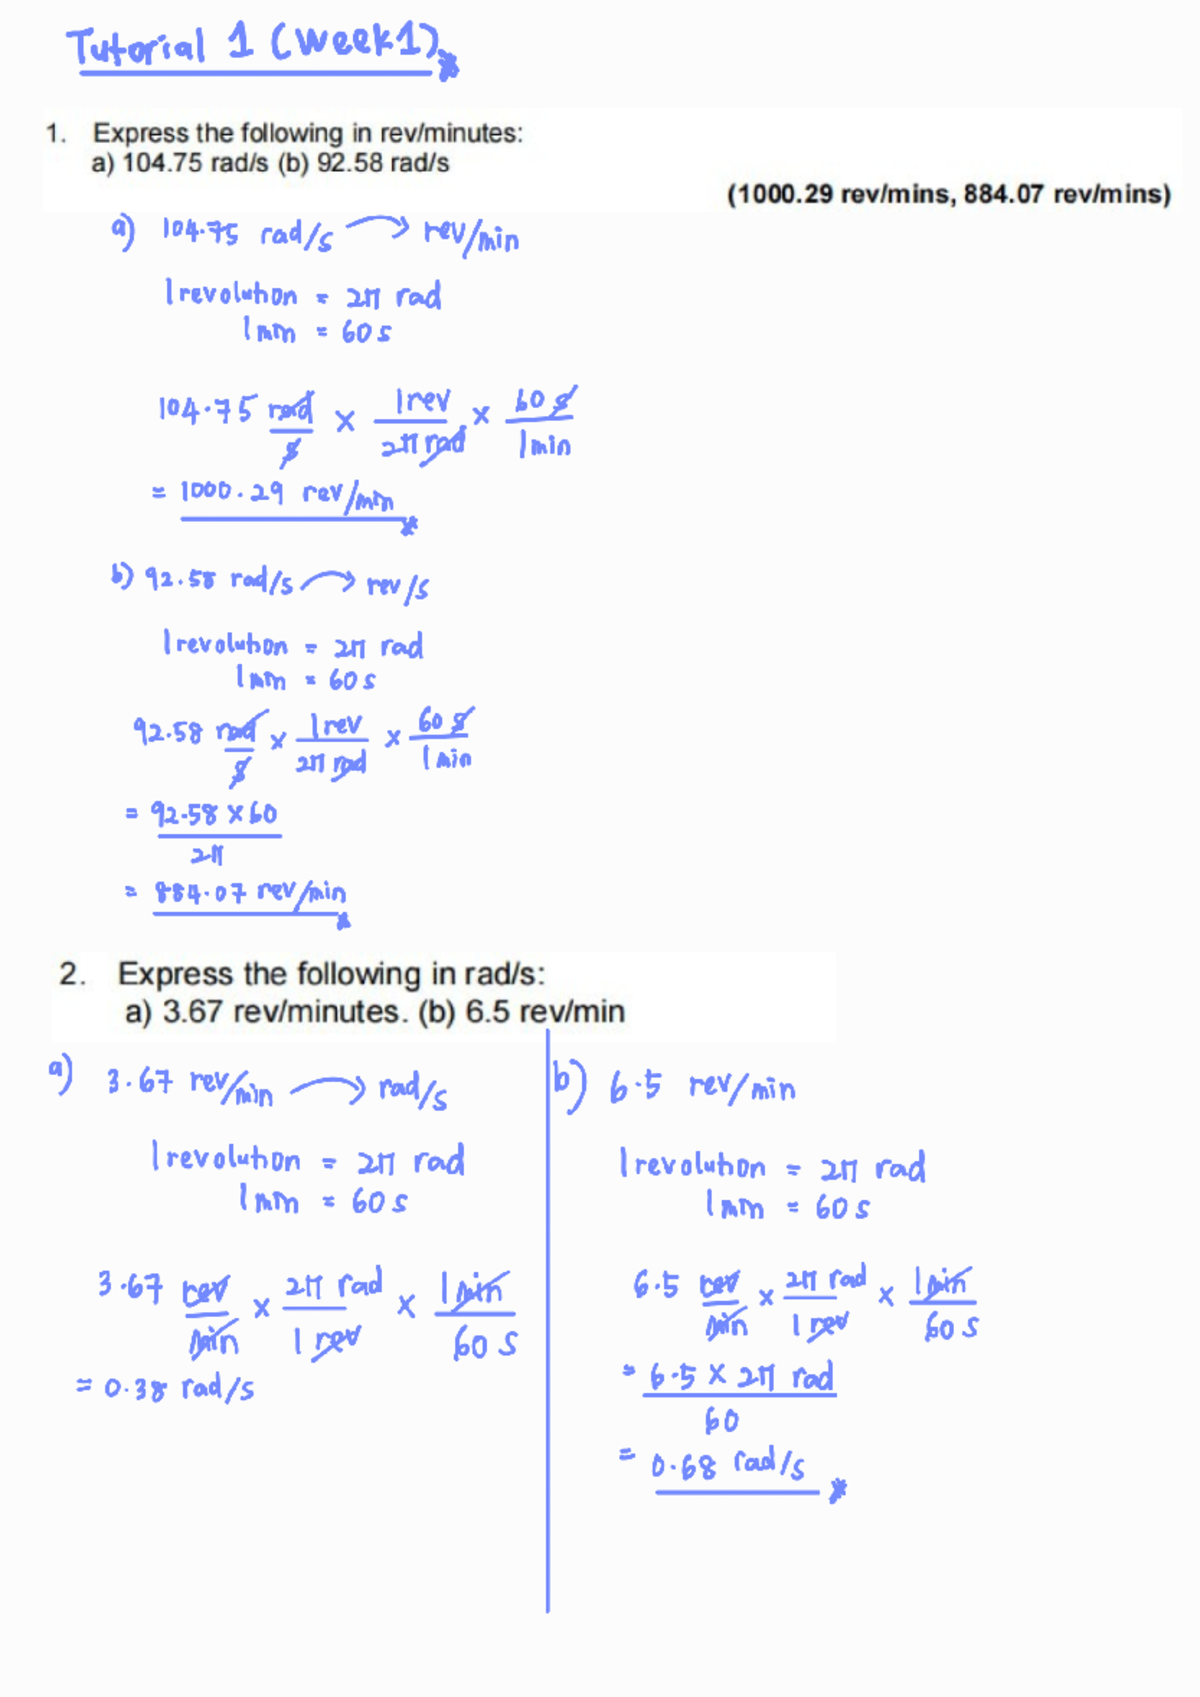 Tutorial 1 (Week1)
1. Express the following in rev/minutes:
a) 104.75 rad/s (b) 92.58 rad/s
(1000.29 rev/mins, 884.07 rev/mins)
a) 104.75 rad/s → rev/min
1 revolution = 2π rad
1 min = 60 s
104.75 rad/s × 1 rev/2π rad × 60 s/1 min
= 1000.29 rev/min
b) 92.58 rad/s → rev/s
1 revolution = 2π rad
1 min = 60 s
92.58 rad/s × 1 rev/2π rad × 60 s/1 min
= 92.58 × 60
2π
= 884.07 rev/min
2. Express the following in rad/s:
a) 3.67 rev/minutes. (b) 6.5 rev/min
a) 3.67 rev/min → rad/s
1 revolution = 2π rad
1 min = 60 s
3.67 rev/min × 2π rad/1 rev × 1 min/60 s
= 0.38 rad/s
b) 6.5 rev/min
1 revolution = 2π rad
1 min = 60 s
6.5 rev/min × 2π rad/1 rev × 1 min/60 s
= 6.5 × 2π rad
60
= 0.68 rad/s